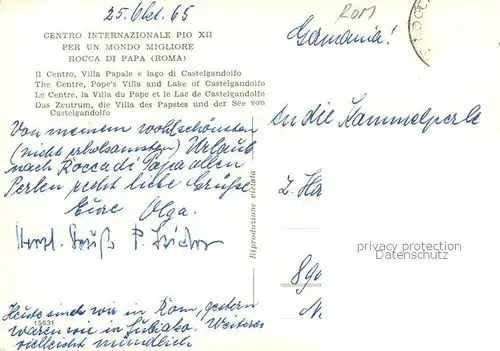 25. Okt. 65
ROM
CENTRO INTERNAZIONALE PIO XII
PER UN MONDO MIGLIORE
ROCCA DI PAPA (ROMA)
Il Centro, Villa Papale e lago di Castelgandolfo
The Centre, Pope's Villa and Lake of Castelgandolfo
Le Centre, la Villa du Pape et le Lac de Castelgandolfo
Das Zentrum, die Villa des Papstes und der See von
Castelgandolfo
Von meinem wohl schönsten
(nicht erholsamsten) Urlaub
nach Rocca di Papa allen
Perlen recht liebe Grüße
Eure Olga.
Herzl. Gruß P.
Heute sind wir in Rom, gestern
waren wir in Subiako. Weiteres
vielleicht mündlich
15531
Riproduzione vietata
Germania!
An die Kammelperle
z. Ha
890
privacy protection
Datenschutz